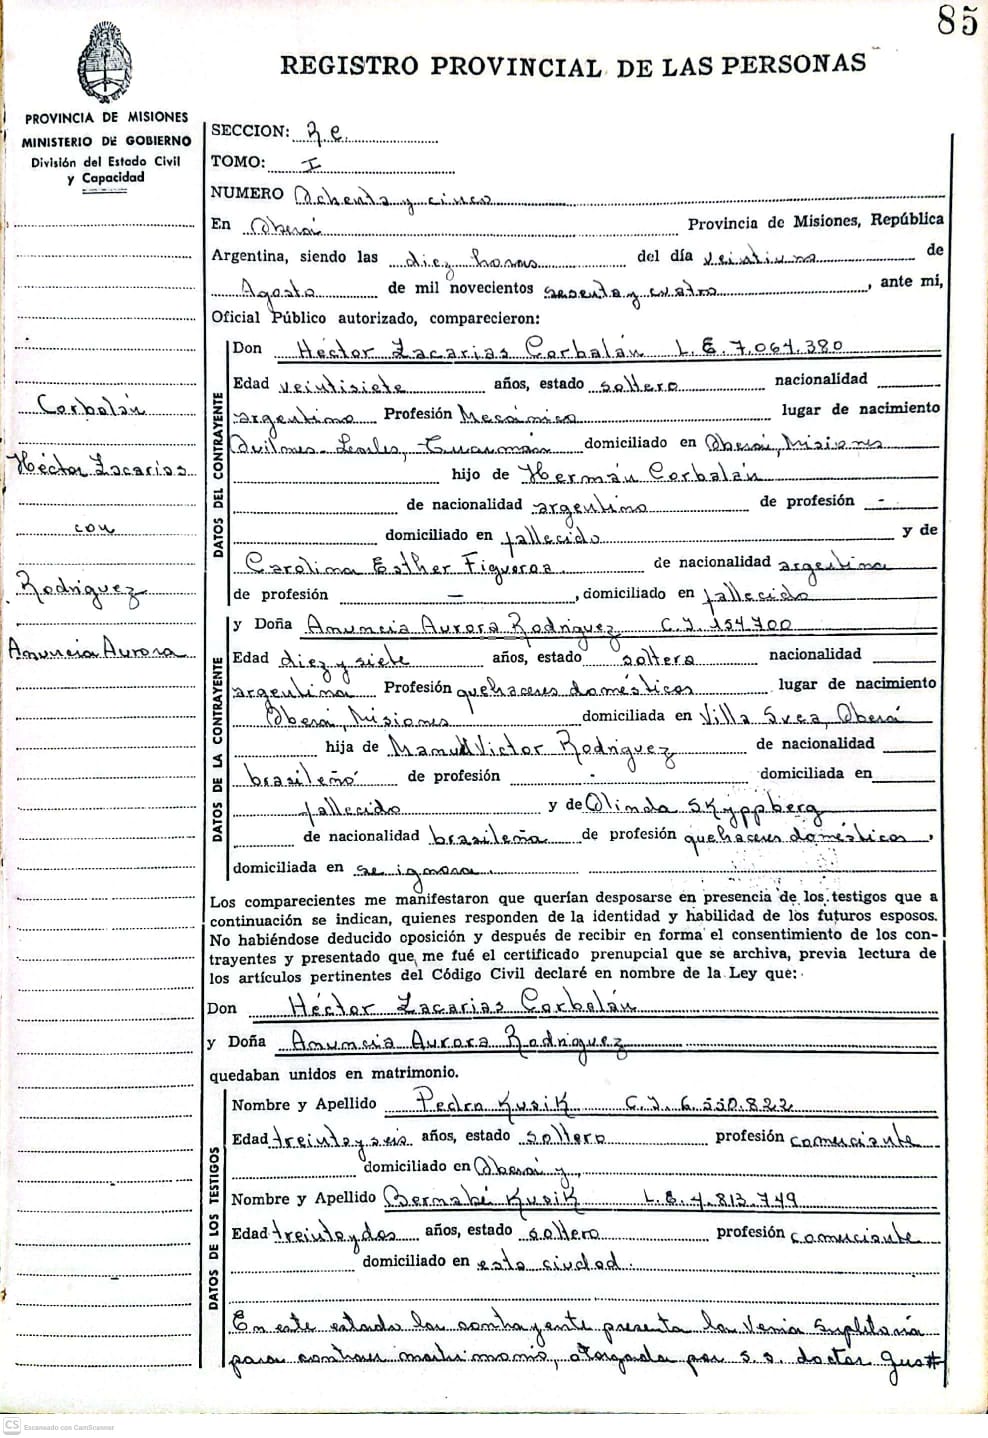 85
REGISTRO PROVINCIAL DE LAS PERSONAS
PROVINCIA DE MISIONES
MINISTERIO DE GOBIERNO
División del Estado Civil
y Capacidad
Corbalán
Héctor Zacarias
con
Rodriguez
Anuncia Aurora
SECCION: R e.
TOMO: I
NUMERO Ochenta y cinco
En Oberá Provincia de Misiones, República
Argentina, siendo las diez horas del día veintiuno de
Agosto de mil novecientos sesenta y cuatro, ante mi,
Oficial Público autorizado, comparecieron:
DATOS DEL CONTRAYENTE
Don Héctor Zacarias Corbalán L.E. 7.067.380
Edad veintisiete años, estado soltero nacionalidad
argentino Profesión Mecánico lugar de nacimiento
Quilmes-Leales, Tucumán domiciliado en Oberá, Misiones
hijo de Hermán Corbalán
de nacionalidad argentino de profesión -
domiciliado en fallecido y de
Carolina Esther Figueroa de nacionalidad argentina
de profesión —, domiciliado en fallecido
DATOS DE LA CONTRAYENTE
y Doña Anuncia Aurora Rodriguez C.I. 154.700
Edad diez y siete años, estado soltera nacionalidad
argentina Profesión quehaceres domésticos lugar de nacimiento
Oberá, Misiones domiciliada en Villa Svea, Oberá
hija de Manuel Victor Rodriguez de nacionalidad
brasileño de profesión - domiciliada en
fallecido y de Olinda Skyppberg
de nacionalidad brasileña de profesión quehaceres domésticos,
domiciliada en se ignora.
Los comparecientes me manifestaron que querían desposarse en presencia de los testigos que a
continuación se indican, quienes responden de la identidad y habilidad de los futuros esposos.
No habiéndose deducido oposición y después de recibir en forma el consentimiento de los con-
trayentes y presentado que me fué el certificado prenupcial que se archiva, previa lectura de
los artículos pertinentes del Código Civil declaré en nombre de la Ley que:
Don Héctor Zacarias Corbalán
y Doña Anuncia Aurora Rodriguez
quedaban unidos en matrimonio.
DATOS DE LOS TESTIGOS
Nombre y Apellido Pedro Kusik C.I. 6.550.822
Edad treinta y seis años, estado soltero profesión comerciante
domiciliado en Oberá y,
Nombre y Apellido Bernabé Kusik L.E. 4.813.749
Edad treinta y dos años, estado soltero profesión comerciante
domiciliado en esta ciudad.
En este estado la contrayente presenta la Venia Supletoria
para contraer matrimonio, otorgada por S.S. doctor Gus#
CS Escaneado con CamScanner